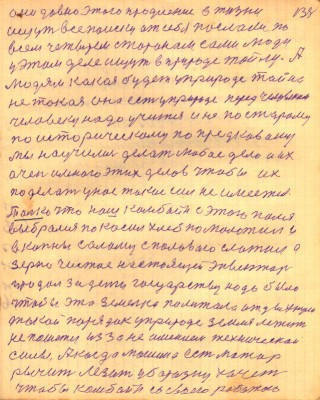 они давно этого продление в жизни 135
ищут все поиску от себя послали по
всем четвером сторонам сами люди
у этом деле ищут в природе тайну. А
людям какая будет у природе тайна
не такая она есть у природе перед человеком
человеку надо учится и не по старому
по историческому по предковому
мы научили делат любое дело а их
очен много этих делов чтобы их
поделат у нас такое сил не имеется.
Только что наш комбайн с этого поля
выбрался покосил хлеб помолотил и
в копны солому с половаю сложил а
зерно чистое настоящей
продал за день государству надо было
чтобы эта земелька
такой порядок у природе земля лежит
не пахота из за не имением технической
силы. А когда машина есть мотор
рычит лезит у борозну хочет
чтобы комбайн со своего работою